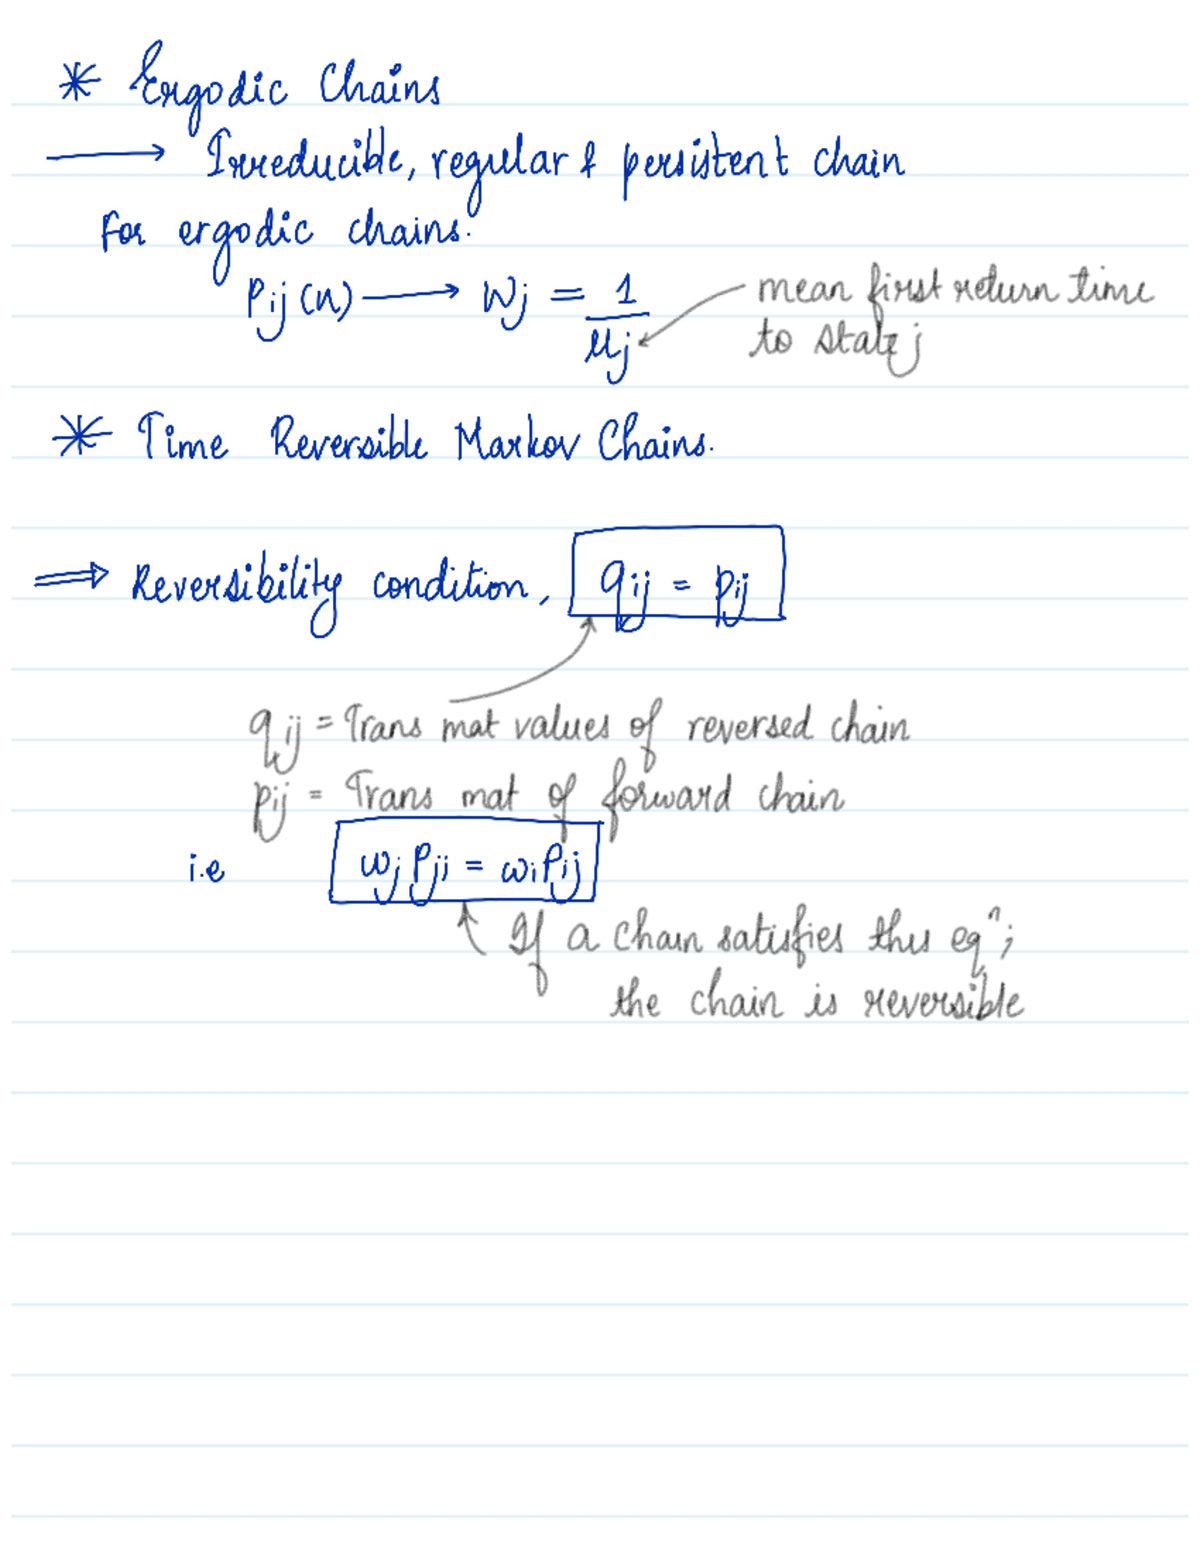 * Ergodic Chains
→ Irreducible, regular & persistent chain
For ergodic chains.
Pij (n) → Wj = 1/μj ← mean first return time
to state j
* Time Reversible Markov Chains.
⇒ Reversibility condition, qij = pij
qij = Trans mat values of reversed chain
pij = Trans mat of forward chain
i.e wj Pji = wi Pij
If a chain satisfies this eqⁿ;
the chain is reversible